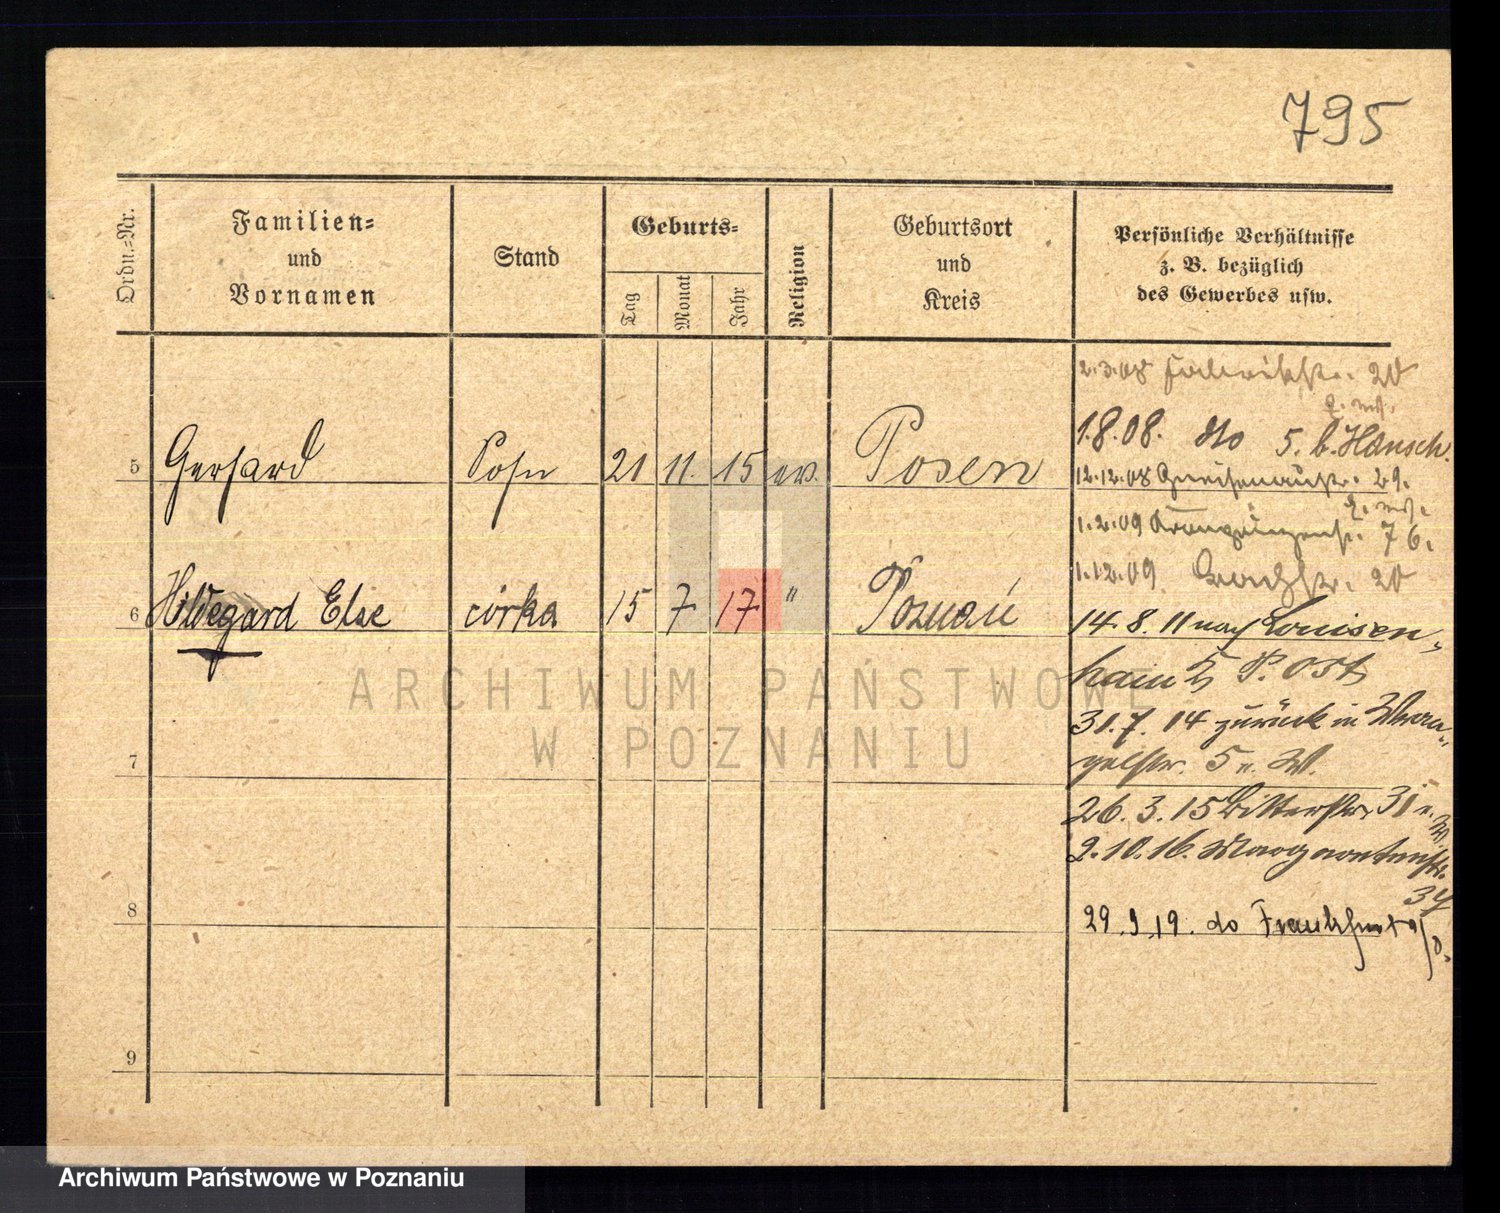 795
Ordn.=Nr.
Familien=
und
Vornamen
Stand
Geburts=
Tag
Monat
Jahr
Religion
Geburtsort
und
Kreis
Persönliche Verhältnisse
z. B. bezüglich
des Gewerbes usw.
5 Gerhard Sohn 21 11. 15 ev. Posen
6 Hildegard Else córka 15 7 17 " Poznań
7
8
9
2.3.08 20
1.8.08. dto 5. b. Hänsch.
12.12.08 Gneisenaustr. 29.
1.2.09 Kronprinzenstr. 76.
1.12.09 20
14. 8. 11 nach Louisen-
hain P. Ost
31. 7. 14 zurück in Wran-
gelstr. 5 n. W.
26. 3. 15 Ritterstr. 31 n. W.
2. 10. 16.
29.9.19. do Frankfurt a/O.
ARCHIWUM PAŃSTWOWE
W POZNANIU
Archiwum Państwowe w Poznaniu